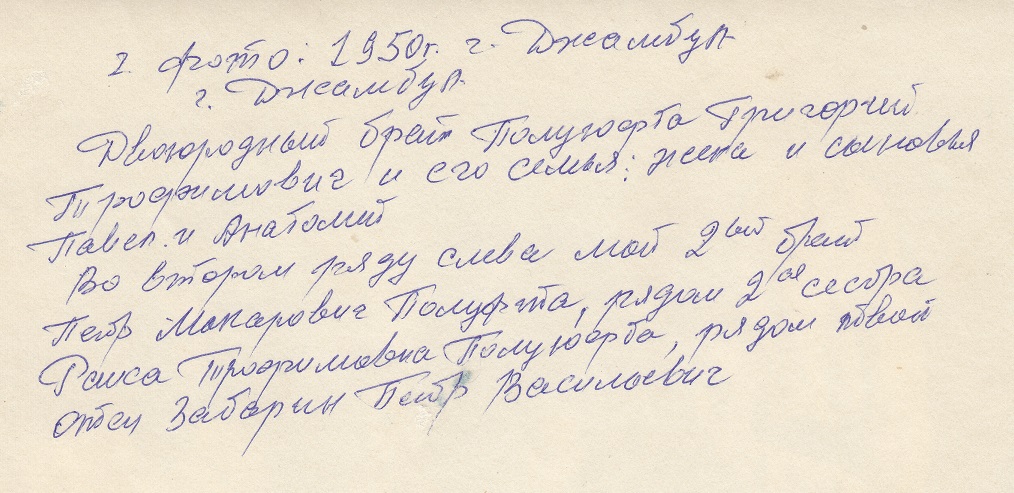 г. фото: 1950г. г. Джамбул
г. Джамбул
Двоюродный брат Полуюфта Григорий
Трофимович и его семья: жена и сыновья
Павел и Анатолий
Во втором ряду слева мой 2ый брат
Петр Макарович Полуфта, рядом 2ая сестра
Раиса Трофимовна Полуюфта, рядом твой
отец Забарин Петр Васильевич